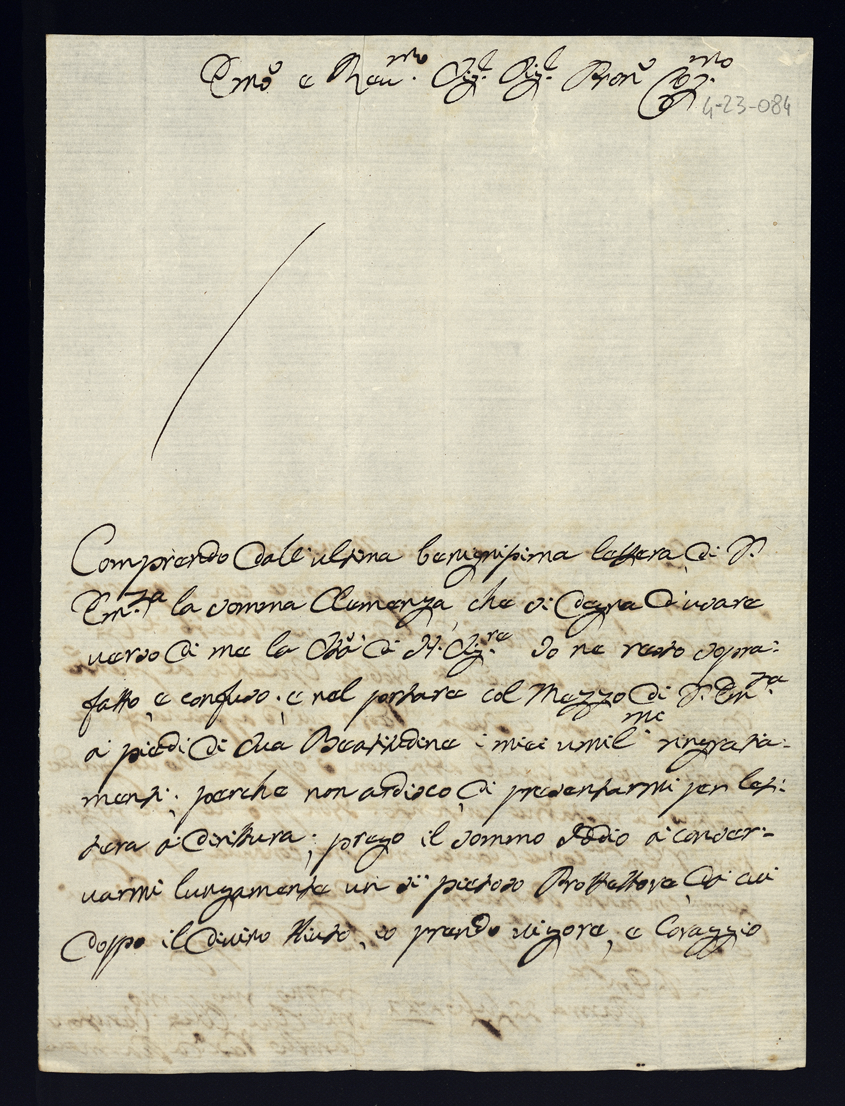 Emo e Reu.mo Sig.r Sig.r Pron Col.mo
4-23-084
Comprendo dall'ultima benignissima lettera di V.
Em.za la somma Clemenza, che si degna d'usare
verso di me la di N. Sig.re Io ne resto sopra-
fatto, e confuso; e nel portare col Mezzo di V. Em.za
a piedi di Sua Beatitudine i miei umil.mi ringratia-
menti; perche non ardisco di presentarmi per let-
tera a diritura; prego il sommo Iddio a conser-
uarmi lungamente un si pietoso Prottettore, da cui
doppo il diuino Aiuto, io prendo uigore, e Coraggio